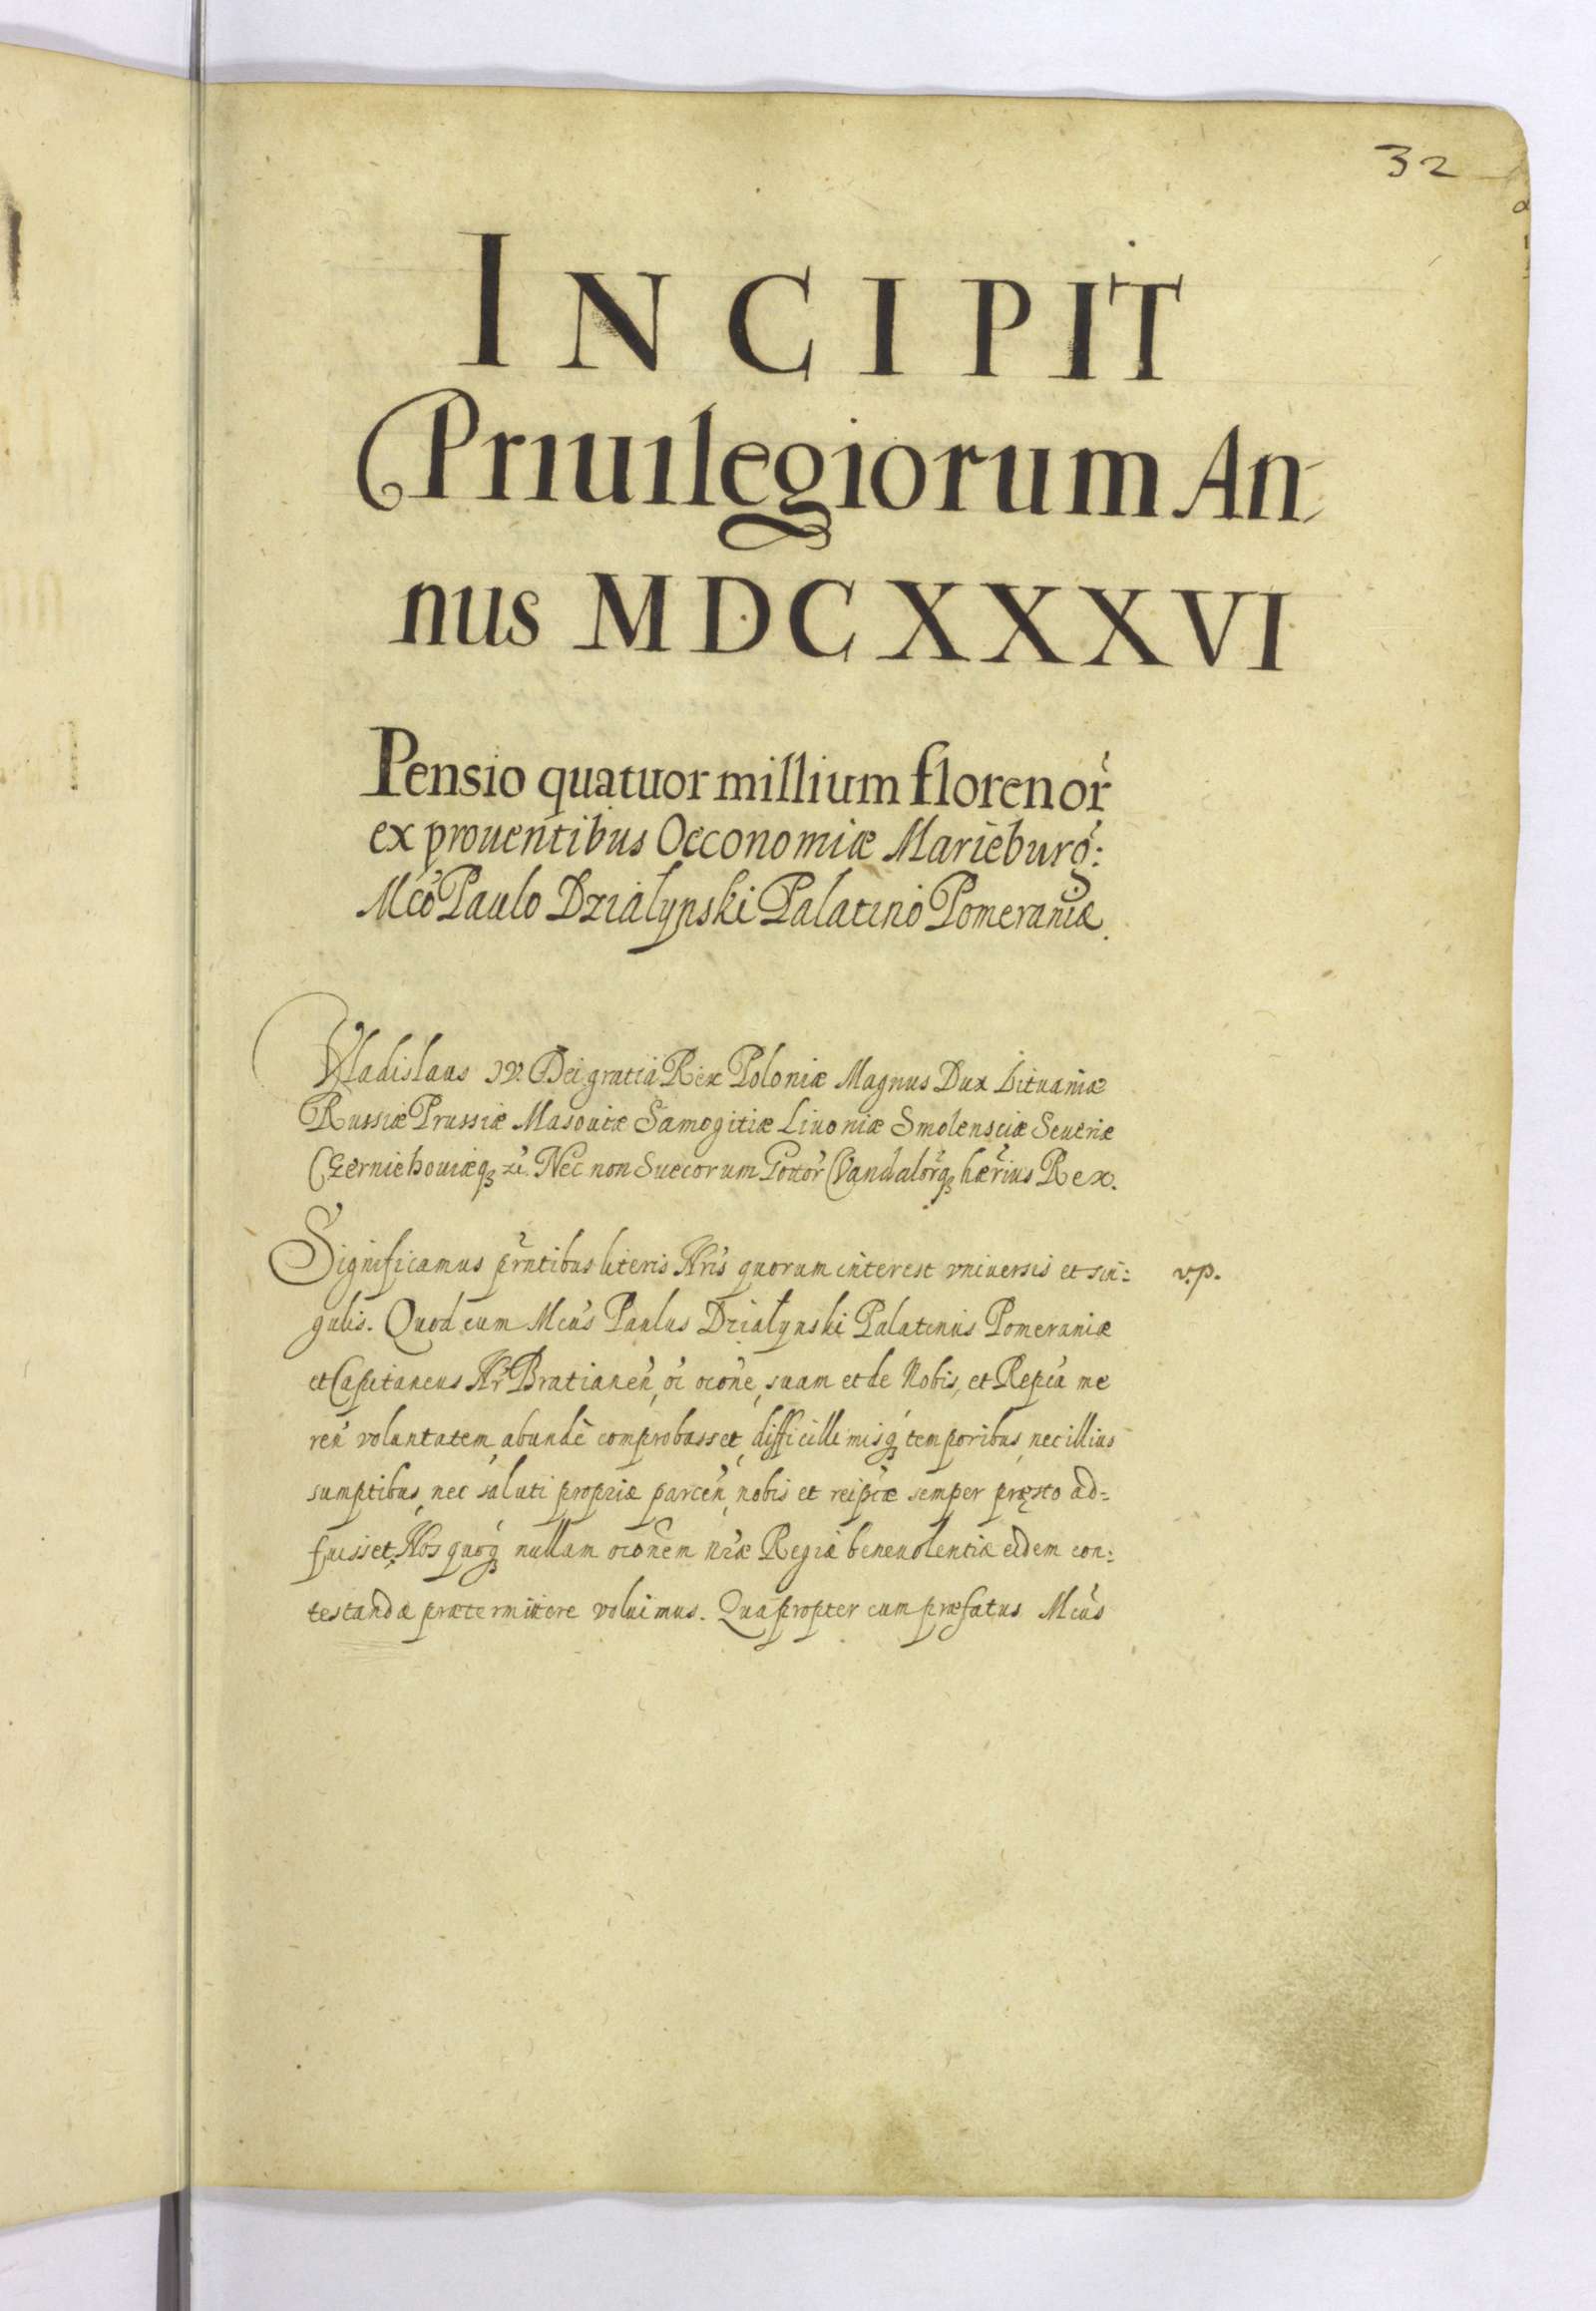 32
INCIPIT
Priuilegiorum An-
nus MDCXXXVI
Pensio quatuor millium florenor̃
ex prouentibus Oeconomiæ Marieburg̃:
Mco Paulo Dzialynski Palatino Pomeraniæ.
Vladislaus IV. Dei gratia Rex Poloniæ Magnus Dux Lituaniæ
Russiæ Prussiæ Masouiæ Samogitiæ Liuoniæ Smolensciæ Seueriæ
Czerniehouiæq₃ Nec non Suecorum Gottor̃ Vandalor̃q₃ hær̃ius Rex.
Significamus pr̃ntibus literis Nr̃is quorum interest vniuersis et sin= v.p.
gulis. Quod cum Mcus Paulus Działynski Palatinus Pomeraniæ
et Capitaneus Nr̃ Bratianen̄, oi ocone, suam et de Nobis, et Repca me
ren̄ voluntatem abundè comprobasset, difficillimisq₃ temporibus, nec illius
sumptibus, nec saluti propriæ parcen̄, nobis et reipcæ semper pręsto ad=
fuisset, Nos quoq₃ nullam oconem nr̃æ Regiæ beneuolentiæ eidem con=
testandæ prætermittere voluimus. Quapropter cum præfatus Mcus